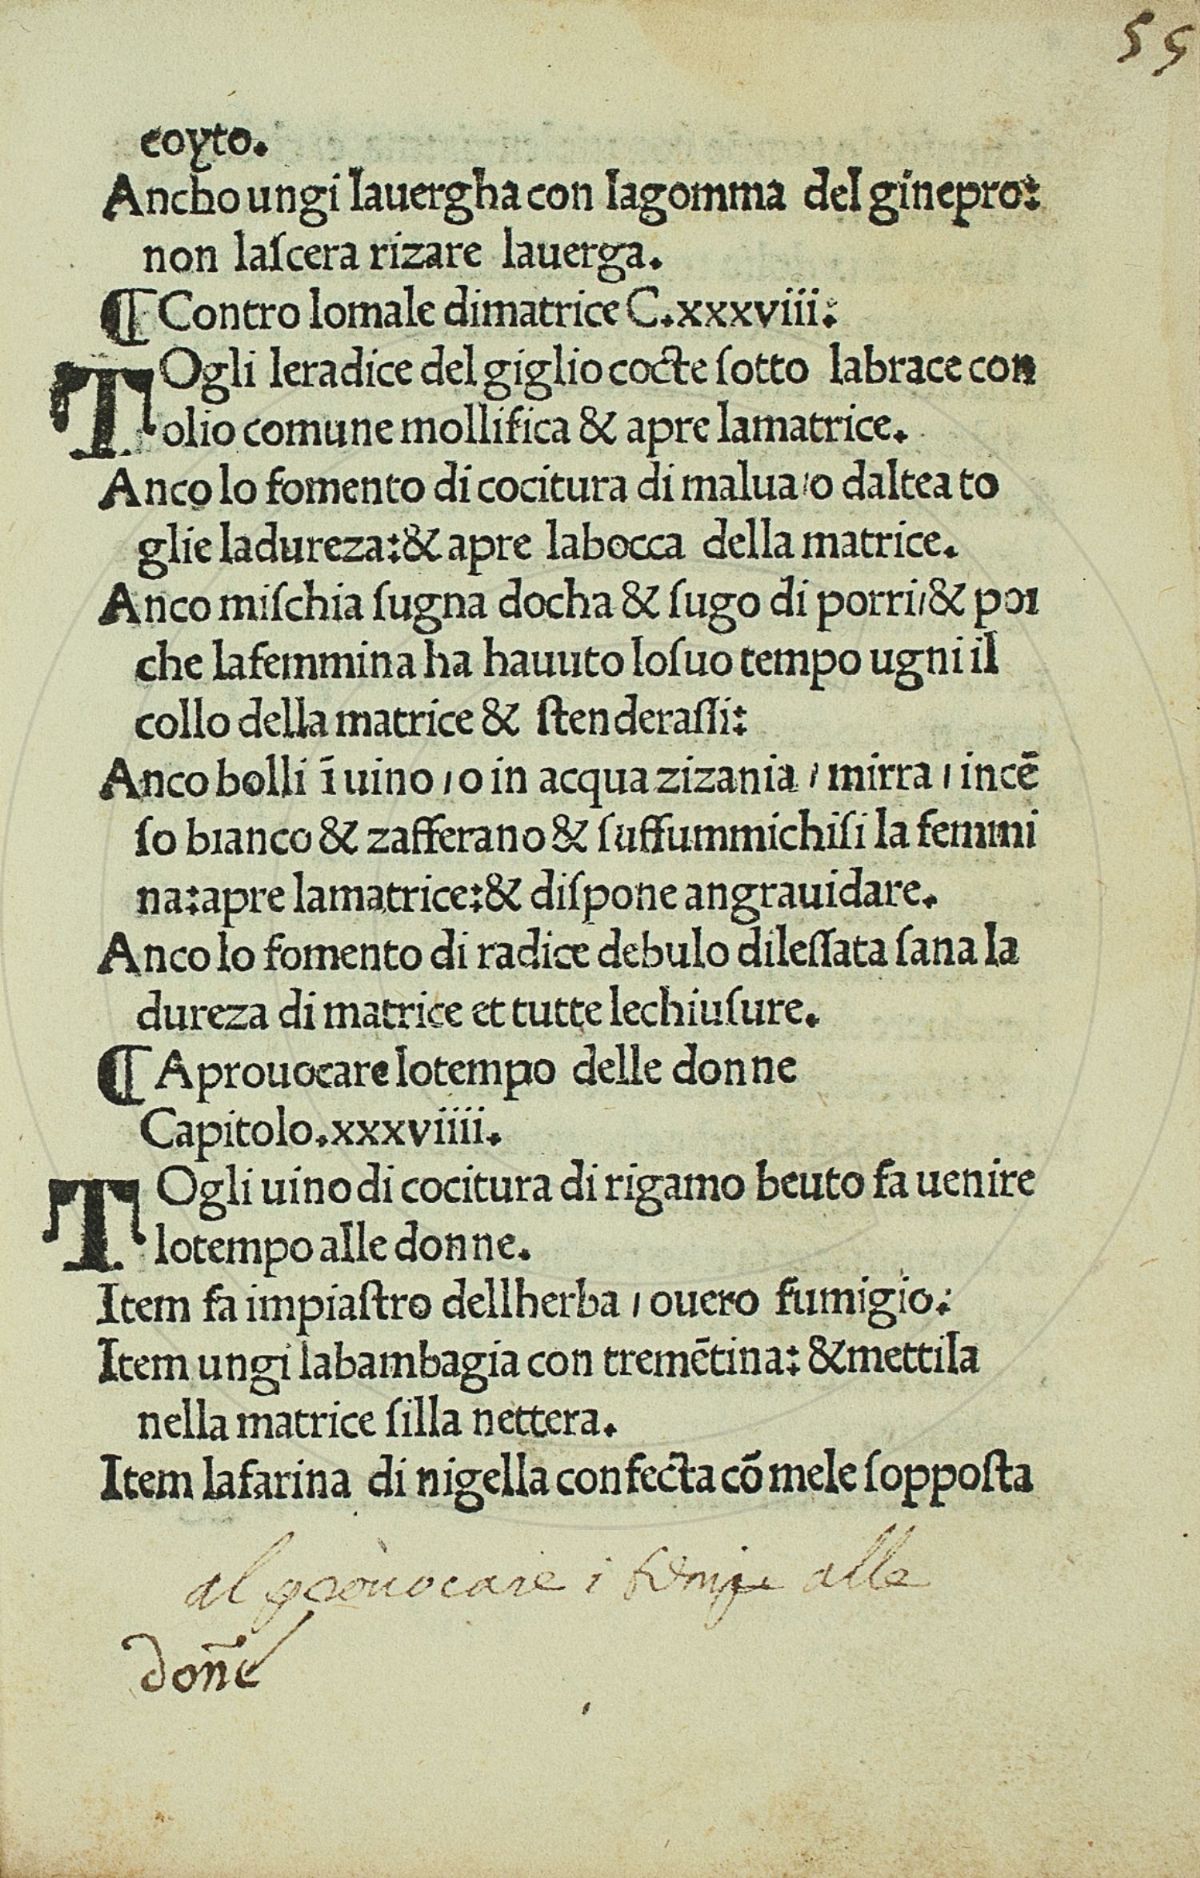 55
coyto.
Ancho ungi lauergha con lagomma del ginepro:
non laſcera rizare lauerga.
¶ Contro lomale dimatrice C.xxxviii:
TOgli leradice del giglio cocte ſotto labrace con
olio comune mollifica & apre lamatrice.
Anco lo fomento di cocitura di malua/o daltea to
glie ladureza:& apre labocca della matrice.
Anco miſchia ſugna docha & ſugo di porri/& poi
che lafemmina ha hauuto loſuo tempo ugni il
collo della matrice & ſtenderaſſi:
Anco bolli ī uino/o in acqua zizania/mirra/incē
ſo bianco & zafferano & ſuffummichiſi la femmi
na:apre lamatrice:& diſpone angrauidare.
Anco lo fomento di radice debulo dileſſata ſana la
dureza di matrice et tutte lechiuſure.
¶ Aprouocare lotempo delle donne
Capitolo.xxxviiii.
TOgli uino di cocitura di rigamo beuto fa uenire
lotempo alle donne.
Item fa impiaſtro dellherba/ouero fumigio:
Item ungi labambagia con tremētina: &mettila
nella matrice ſilla nettera.
Item lafarina di nigella confecta cō mele ſoppoſta
al prouocare i tempi alle
don̄e